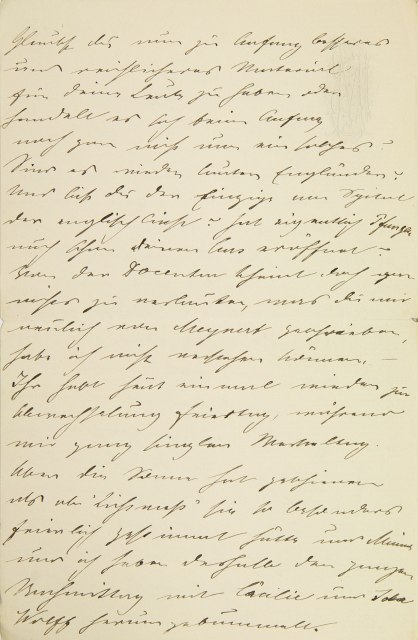 Glaubst du nun zu Anfang besseres
und reichlicheres Material
für deine Leute zu haben oder
handelt es sich beim Anfang
noch gar nicht um ein solches?
Sind es wieder lauter Engländer?
Und bist du der Einzige im Spital
der englisch liest? hat eigentlich
auch schon seinen Curs eröffnet?
Von der Docentur scheint doch gar
nichts zu verlauten, was du mir
neulich von Meynert geschrieben,
habe ich nicht verstehen können. —
Ihr habt heut einmal wieder zur
Abwechslung Feiertag, während
mir ganz simplen Werkeltag.
Aber die Sonne hat geschienen
als ob "Lichtmess" sie so besonders
feierlich gestimmt hätte und Minna
und ich haben deshalb den ganzen
Nachmittag mit Cäcilie und
Wolff herumgebummelt.